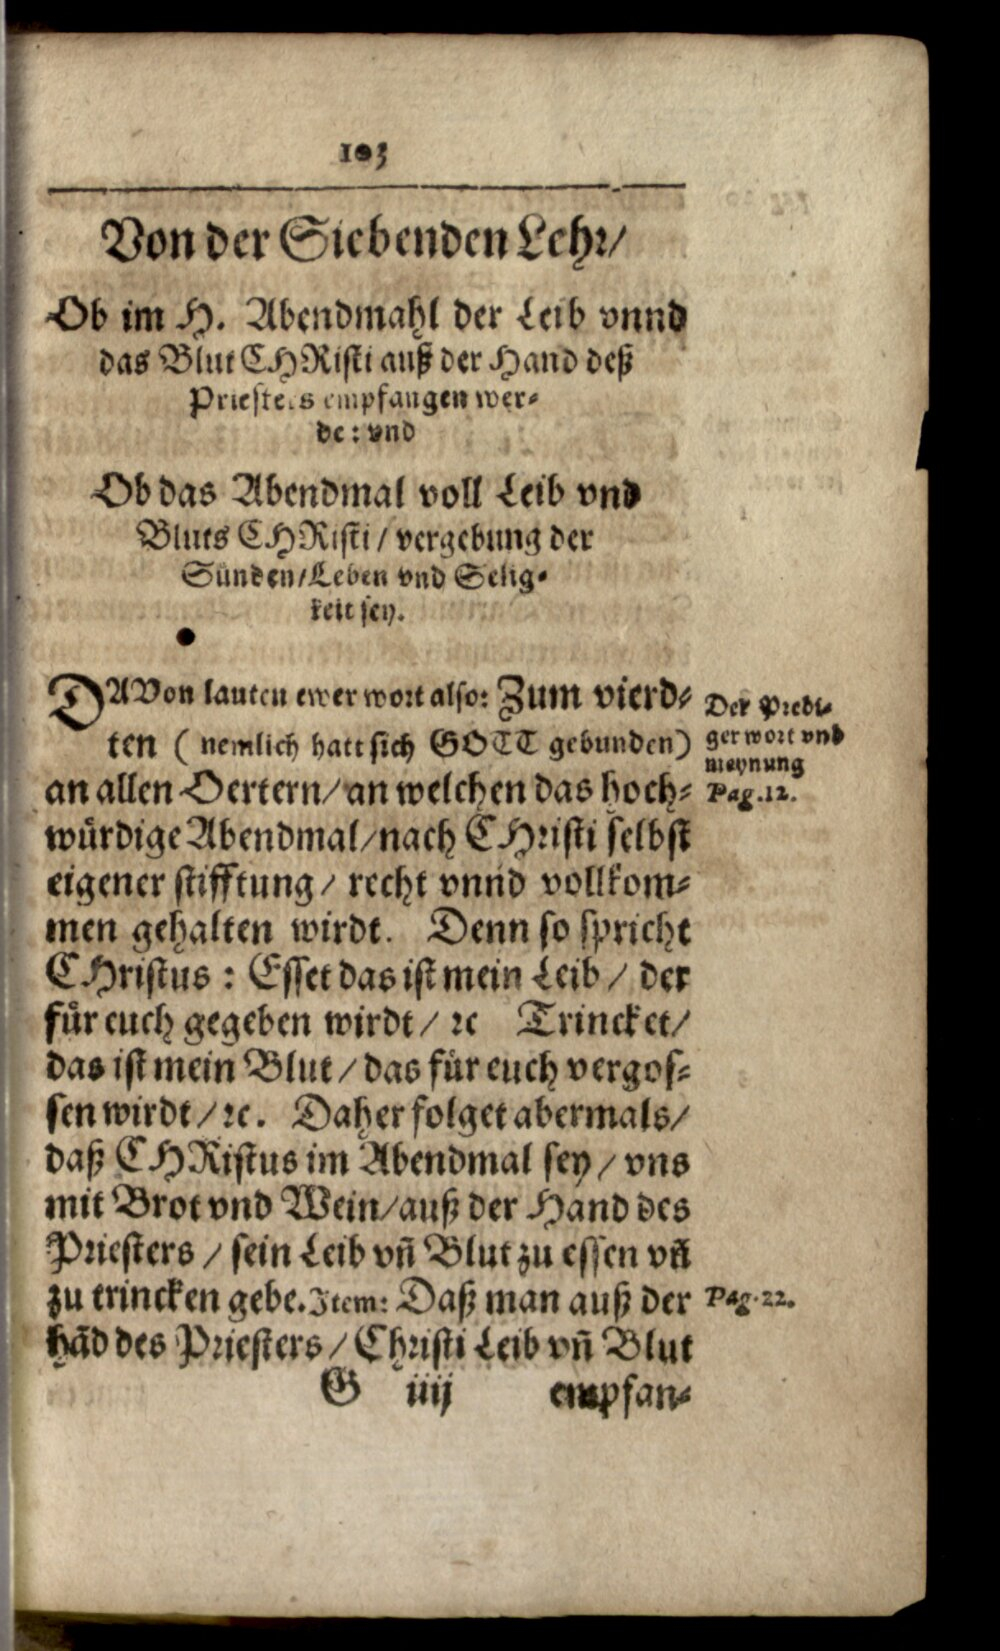 103
Von der Siebenden Lehr/
Ob im H. Abendmahl der Leib vnnd
das Blut CHRisti auß der Hand deß
Priesters empfangen wer-
de: vnd
Ob das Abendmal voll Leib vnd
Bluts CHRisti / vergebung der
Sünden/Leben vnd Selig-
keit sey.
DAVon lauten ewer wort also: Zum vierd-
ten (nemlich hatt sich GOTT gebunden)
an allen Oertern/an welchen das hoch-
würdige Abendmal/nach CHristi selbst
eigener stifftung / recht vnnd vollkom-
men gehalten wirdt. Denn so spricht
CHristus : Esset das ist mein Leib / der
für euch gegeben wirdt / ꝛc Trincket/
das ist mein Blut / das für euch vergos-
sen wirdt / ꝛc. Daher folget abermals/
daß CHRistus im Abendmal sey / vns
mit Brot vnd Wein/auß der Hand des
Priesters / sein Leib vñ Blut zu essen vñ
zu trincken gebe. Item: Daß man auß der
hãd des Priesters / Christi Leib vñ Blut
G iiij empfan-
Der Predi-
ger wort vnd
meynung
Pag.12.
Pag.22.